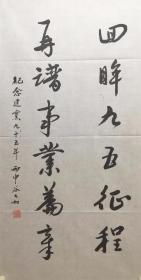 回眸九五征程
再谱事業篇章
纪念建党九十五年
丙申